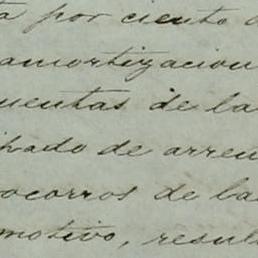 por ciento
amortizacion
cuentas de la
de arren
socorros de la
motivo, resul